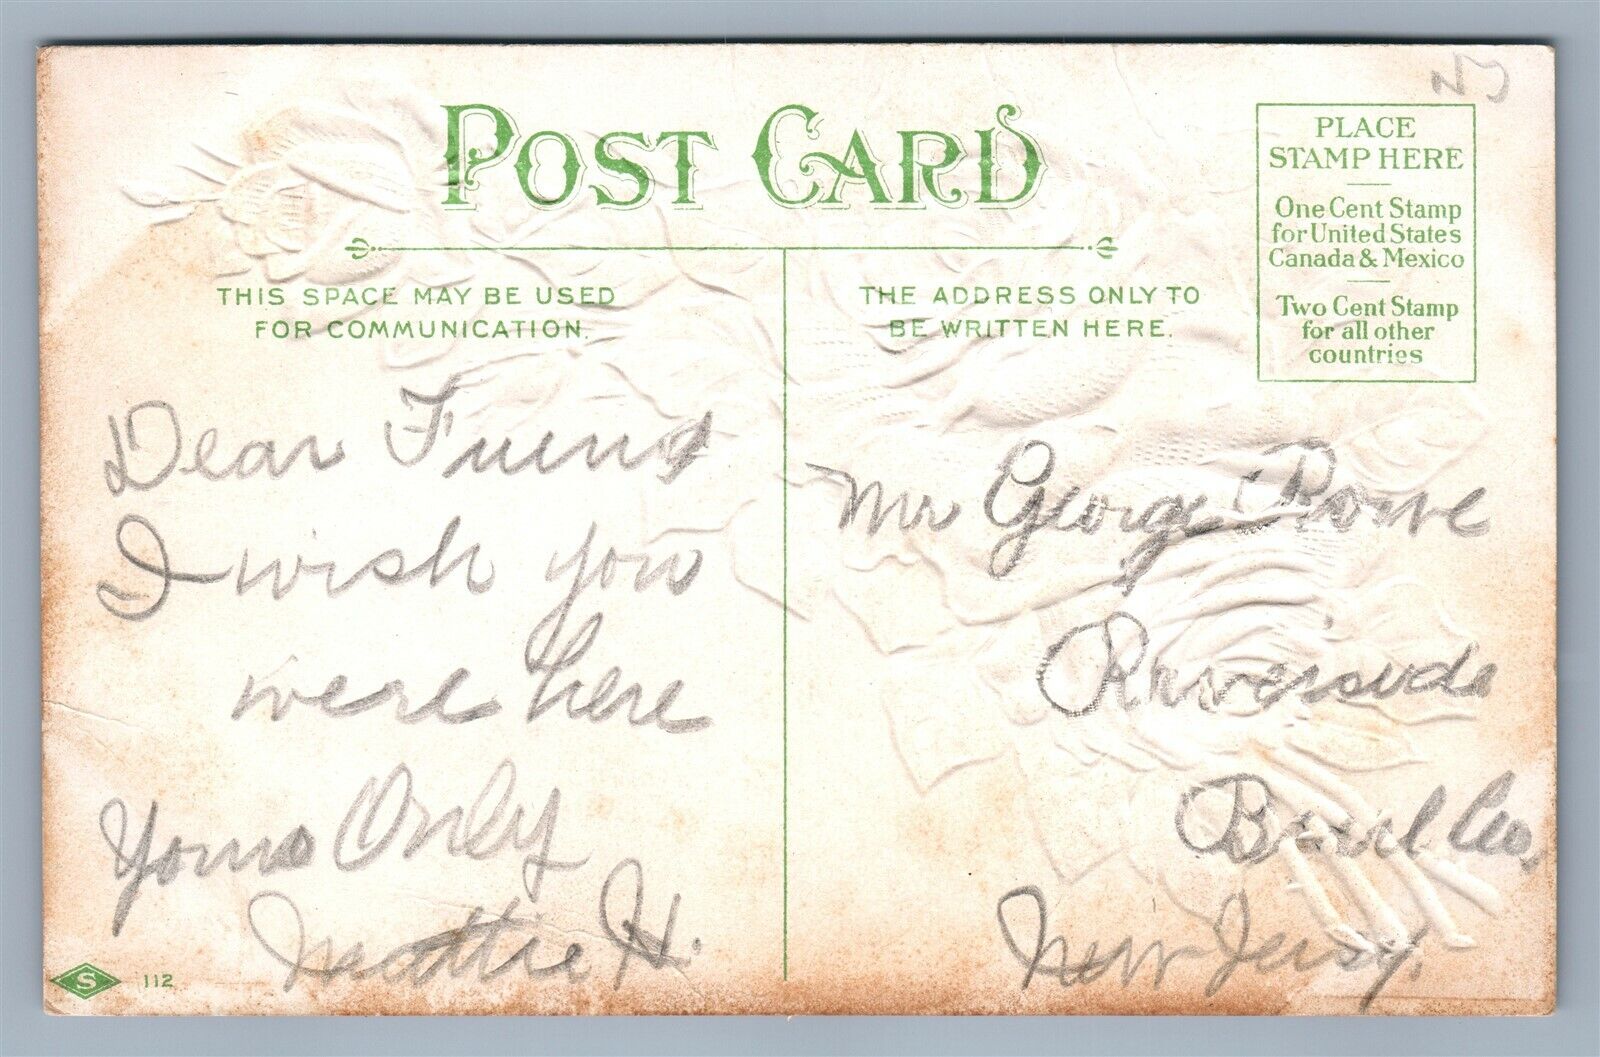 NJ
POST CARD
PLACE
STAMP HERE
One Cent Stamp
for United States
Canada & Mexico
Two Cent Stamp
for all other
countries
THIS SPACE MAY BE USED
FOR COMMUNICATION.
THE ADDRESS ONLY TO
BE WRITTEN HERE.
Dear Friend
I wish you
were here
Yours Only
Mattie H.
Mr George Rowe
Riverside
Burl Co,
New Jersy.
S 112